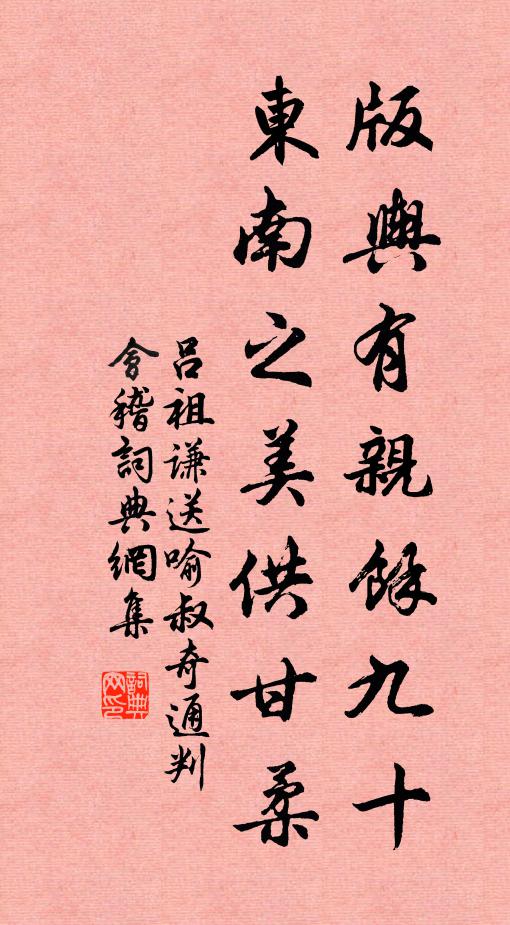 版輿有親餘九十
東南之美供甘柔
呂祖謙送喻叔奇通判
會稽詞典網集
詞典
网印